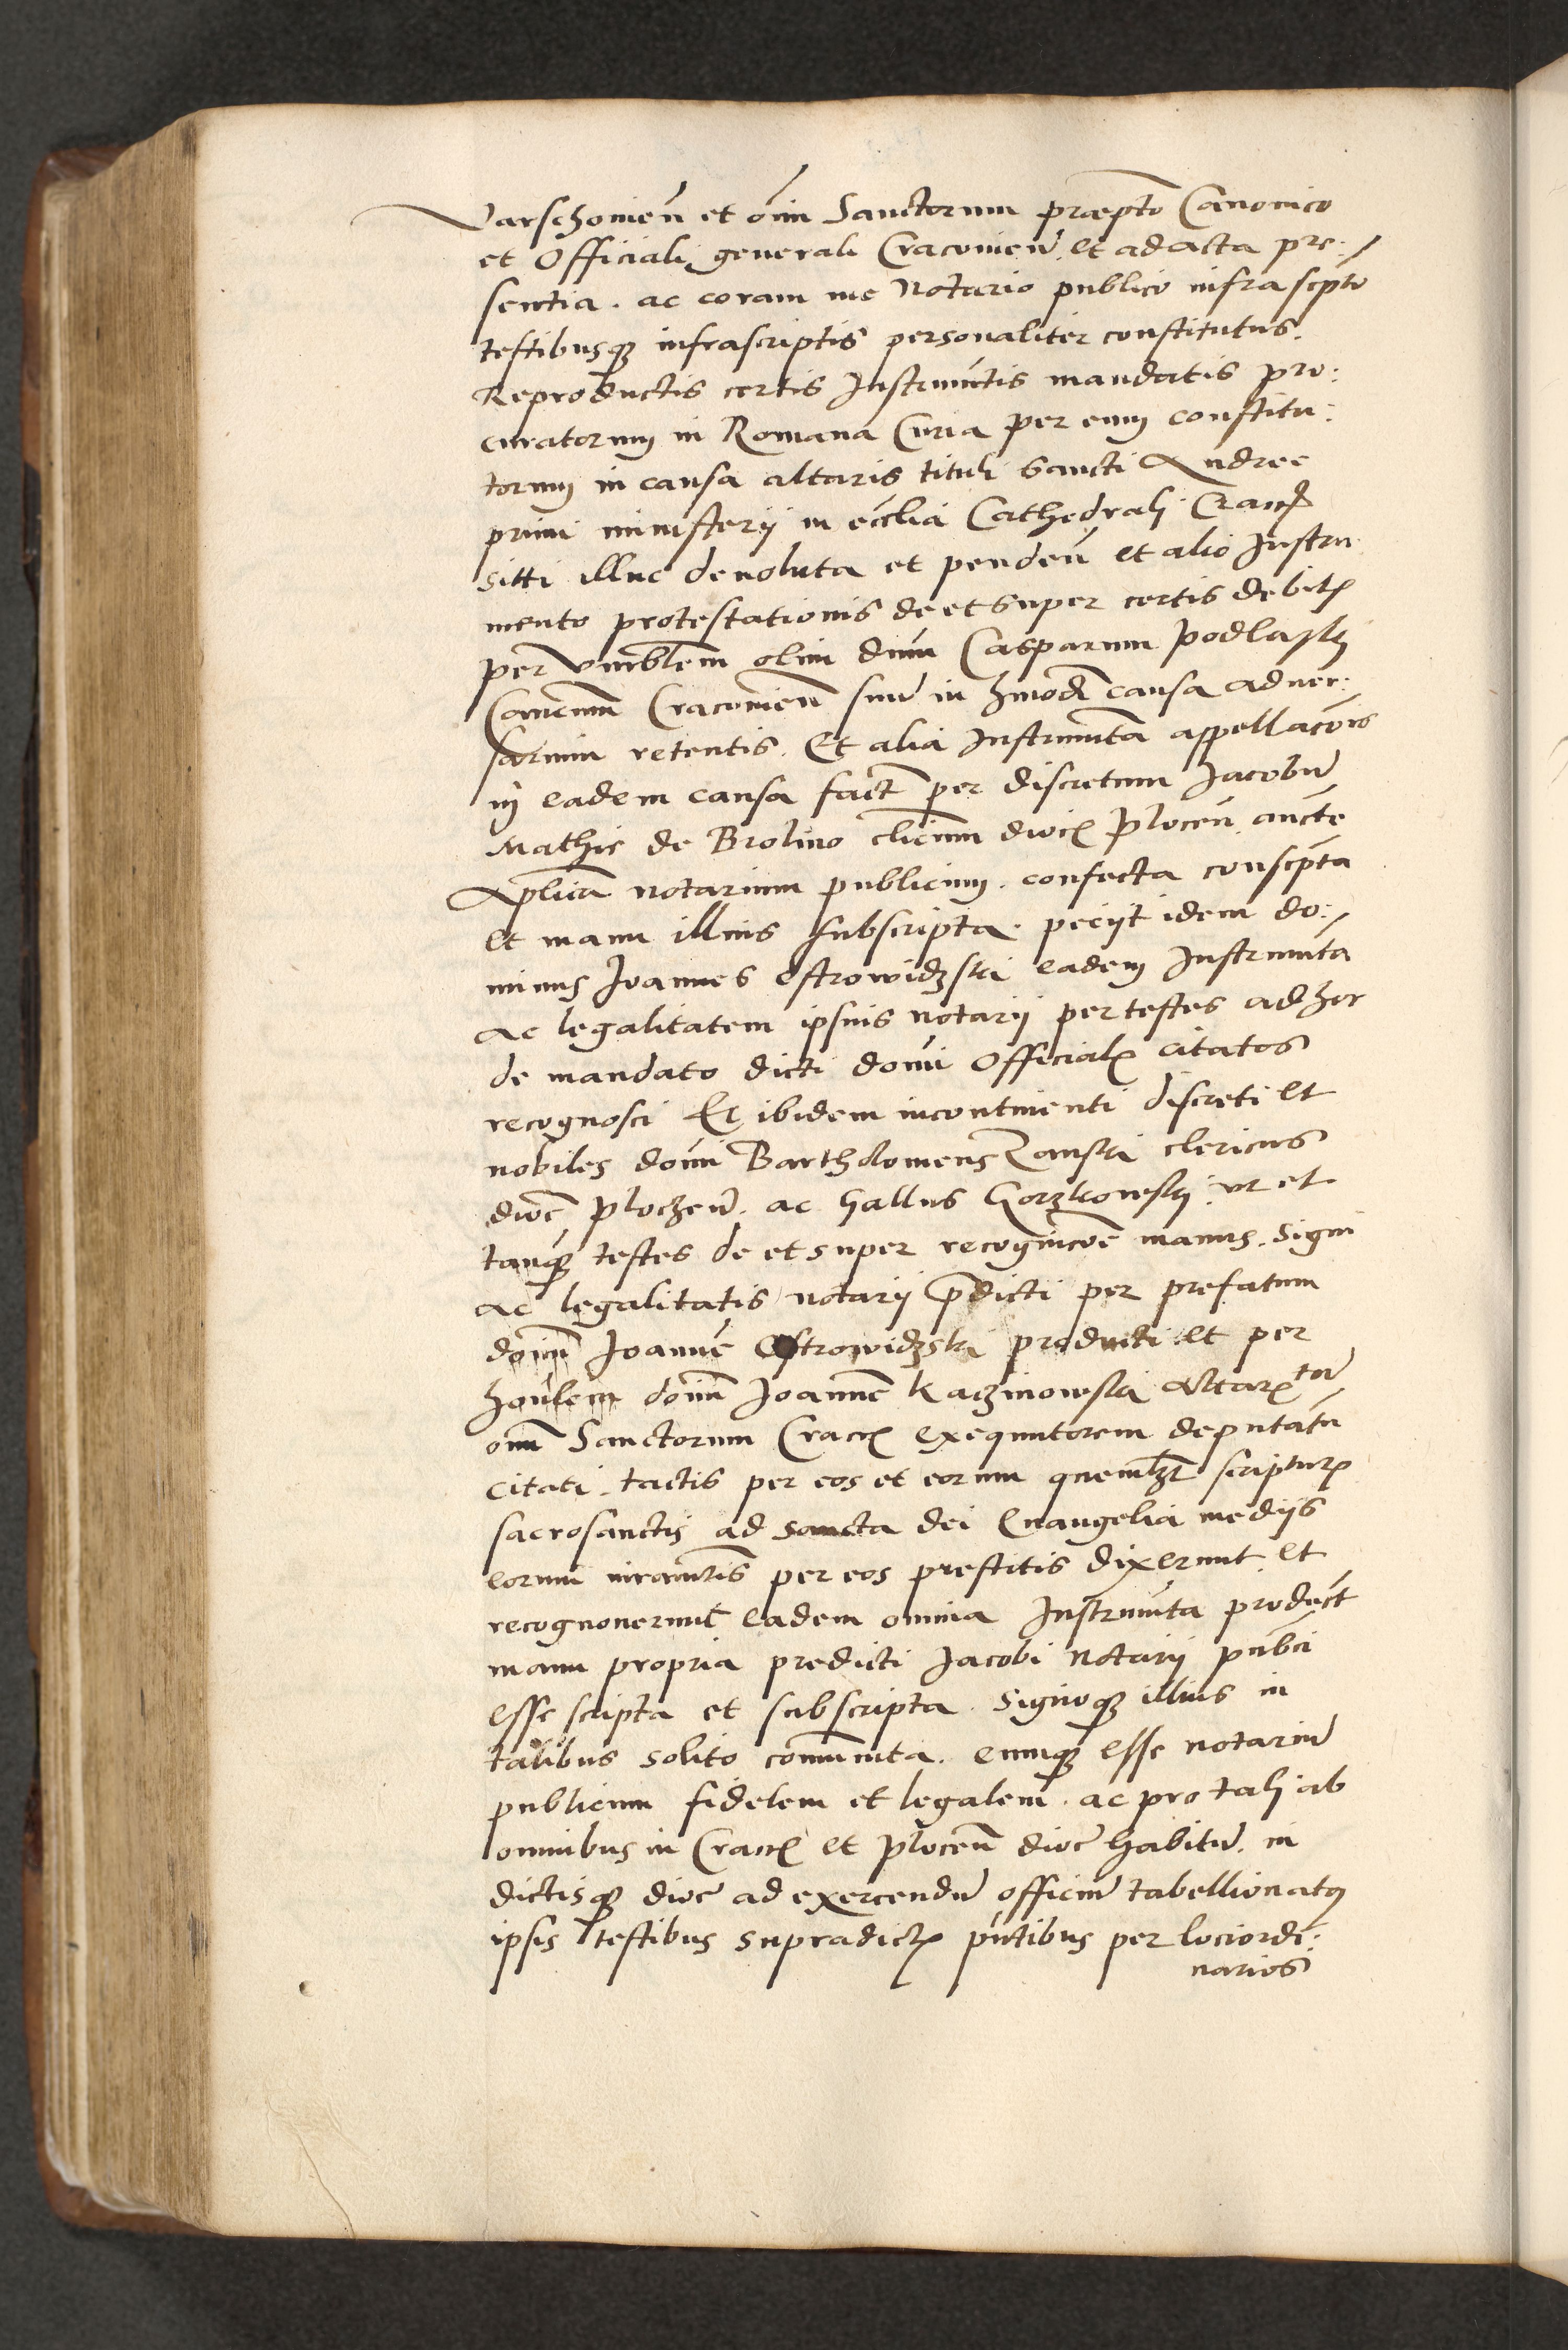 Varschovien̄ et om̄i Sanctorum præpto Canonico
et Officiali generali Cracovien̄. et ad acta pre:
sentia. ac coram me Notario publico infra scpto
testibusq₃ infrascriptis personaliter constitutus.
Reproductis certis Instrumētis mandatis pro:
curatorum in Romana Curia per eum constitu:
torum in causa altaris tituli Sancti Andree
primi ministerij in eccl̄ia Cathedrali Cracꝭ
sitti illuc devoluta et penden̄ et alio Instru
mento protestationis de et super certis debitꝭ
per vn̄rablem olim dnm̄ Casparum Podlaskj
Canc̄num Cracovien̄ suū in hmōdi causa adver:
sarium retentis. Et alia Instrumēta appellac̄ois
in eadem causa fact̄ per discretum Jacobū
Mathie de Brolino clicum diocꝭ Plocen̄. aucte
Aplīca notarium publicum. confecta conscpta
et manu illius subscripta. peciit idem do:
minus Joannes Ostrowidzski eadem Instrumēta
ac legalitatem ipsius notarij per testes ad hoc
de mandato dicti domī Officialꝭ citatos
recognosci Et ibidem incontinenti discreti et
nobiles domī Bartholomeus Zanski clericus
dioc̄ Plochen̄. ac Gallus Gorzkowskj vt et
tanq₃ testes de et super recognicōe manus. signi
ac legalitatis notarij p̄dicti per prefatum
domū Joannē Ostrowidzski producti et per
hon̄lem domū Joannē Kaczinowski Altarꝭtā
om̄ Sanctorum Cracꝭ exequutorem deputatū
citati. tactis per eos et eorum quemlzt scripturꝭ
sacrosanctis ad sancta dei Evangelia mediis
eorum iuramētis per eos prestitis dixerunt et
recognoverunt eadem omnia Instrumēta product̄
manu propria predicti Jacobi Notarij publci
esse scripta et subscripta. Signoq₃ illius in
talibus solito communita. eumq₃ esse notariū
publicum fidelem et legalem. ac pro tali ab
omnibus in Cracꝭ et Plocen̄ dioc̄ habitū. in
dictisq₃ dioc̄ ad exercendū officiū tabellionatꝰ
ipsis testibus supradictꝭ pn̄tibus per loci ordi:
narios